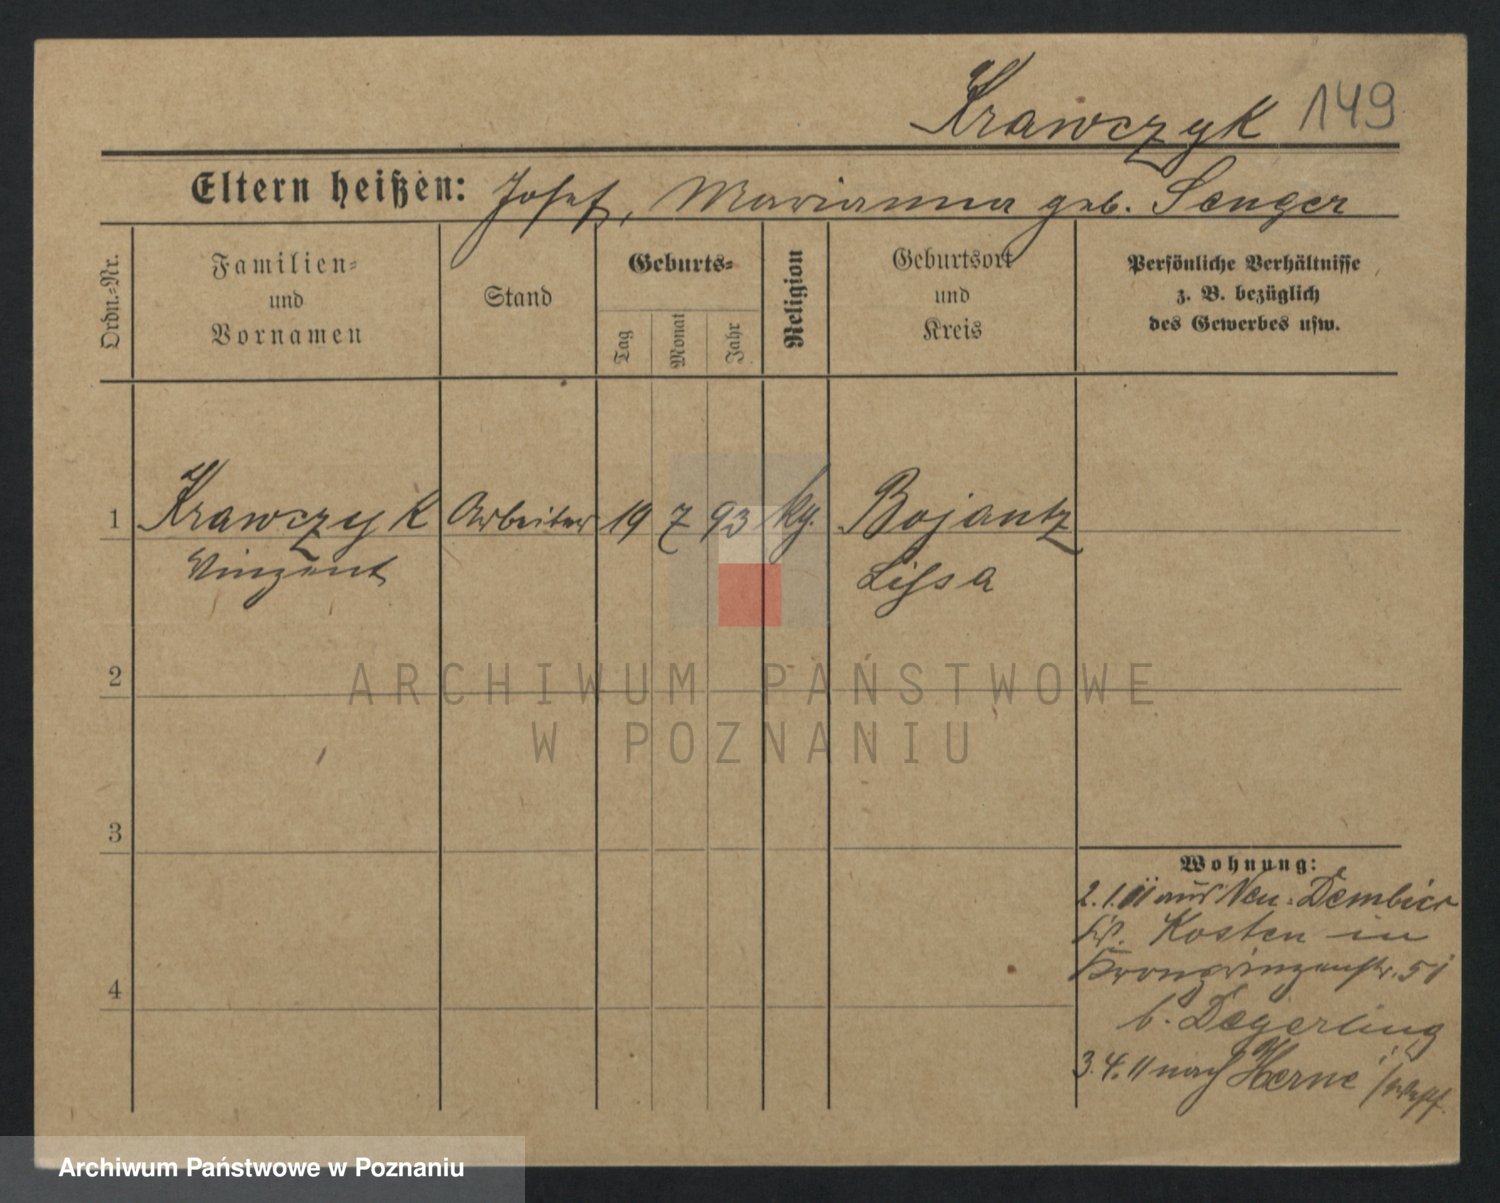 Krawczyk 149
Eltern heißen: Josef, Marianna geb. Senger
Ordn.-Nr.
Familien- und Vornamen
Stand
Geburts-
Tag
Monat
Jahr
Religion
Geburtsort und Kreis
Persönliche Verhältnisse
z. B. bezüglich
des Gewerbes usw.
1 Krawczyk Arbeiter 19 7 93 kg. Bojantz
Vinzent Lissa
2
ARCHIWUM PAŃSTWOWE
W POZNANIU
3
Wohnung:
2.1.11 aus Neu-Dembiec
Kr. Kosten in
Kronprinzenstr. 51
4
b. Degerling
3.4.11 nach Herne / Westf.
Archiwum Państwowe w Poznaniu